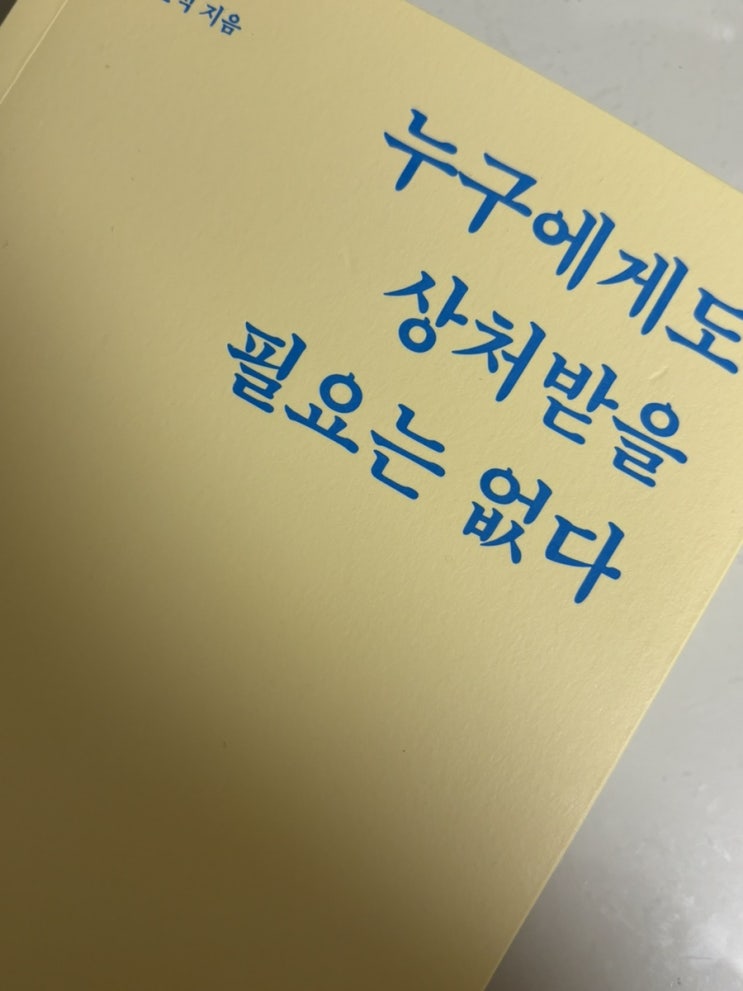 지음
누구에게도
상처받을
필요는 없다